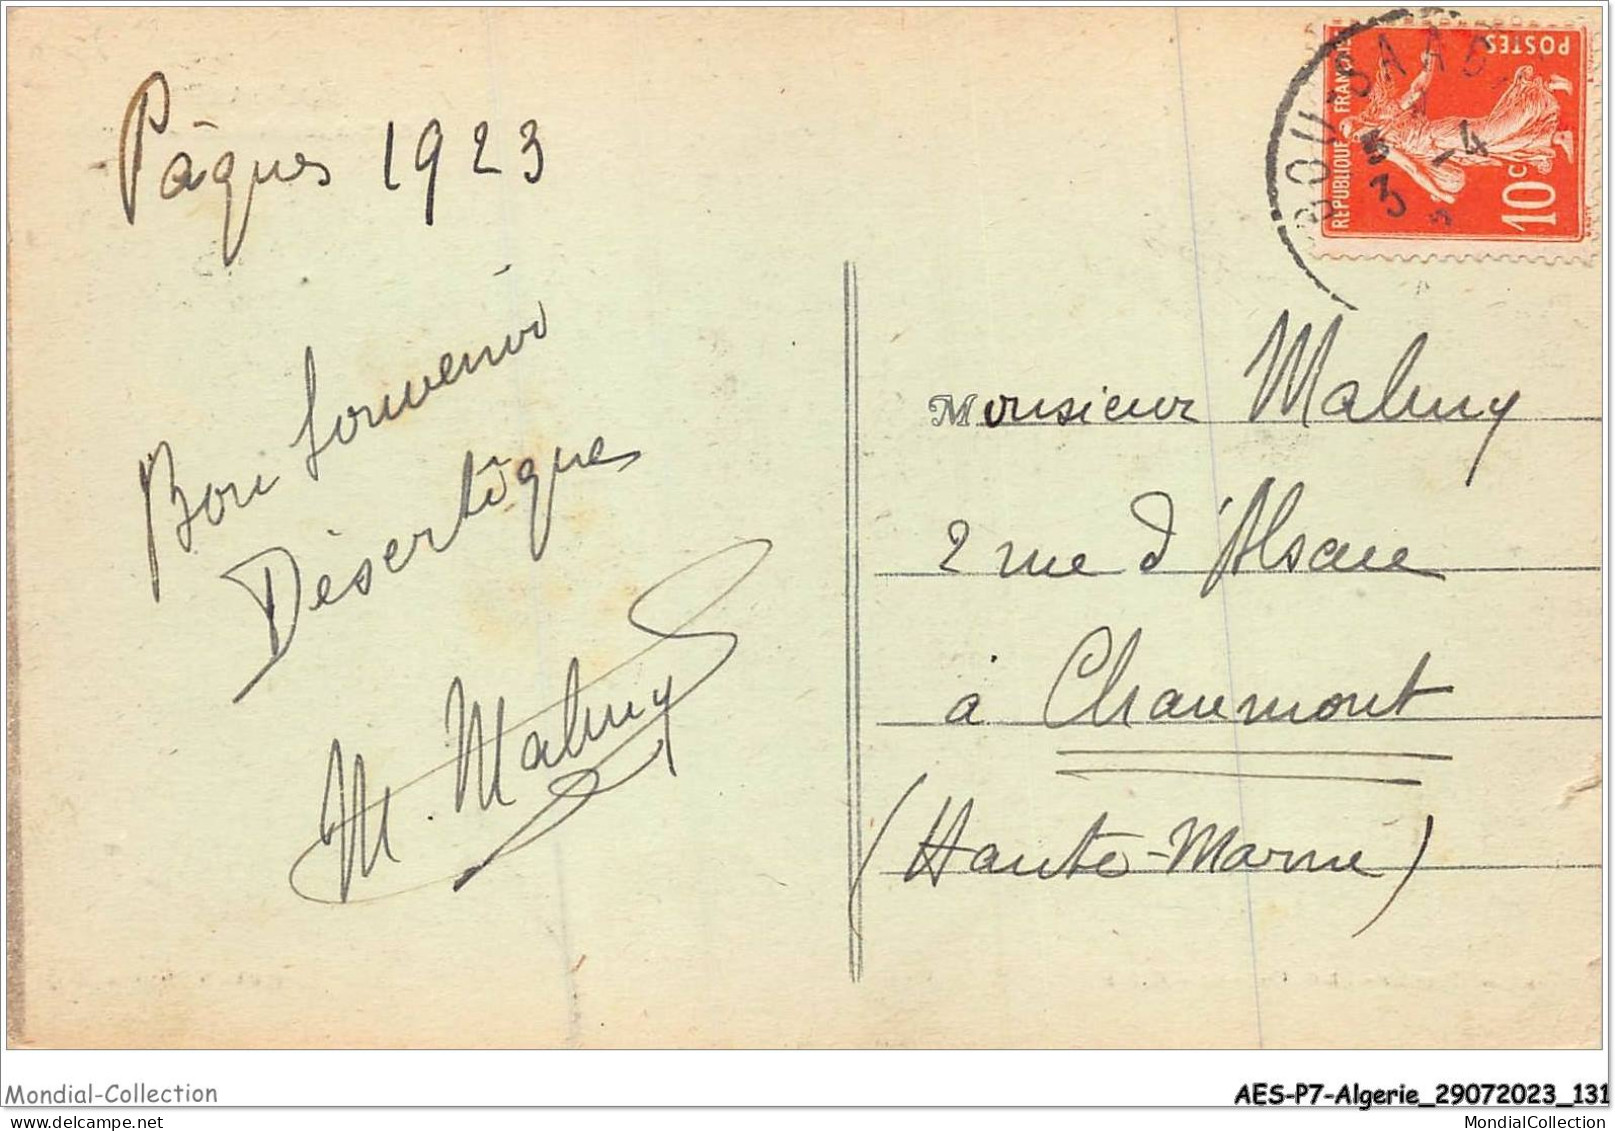 Pâques 1923
Bon souvenir
Désertique
M. Malmy
BOU-SAAD
3 -4
POSTES
REPUBLIQUE FRANÇAISE
10c
Monsieur Malmy
2 rue d'Alsace
à Chaumont
(Haute-Marne)
Mondial-Collection
AES-P7-Algerie_29072023_131
www.delcampe.net
MondialCollection